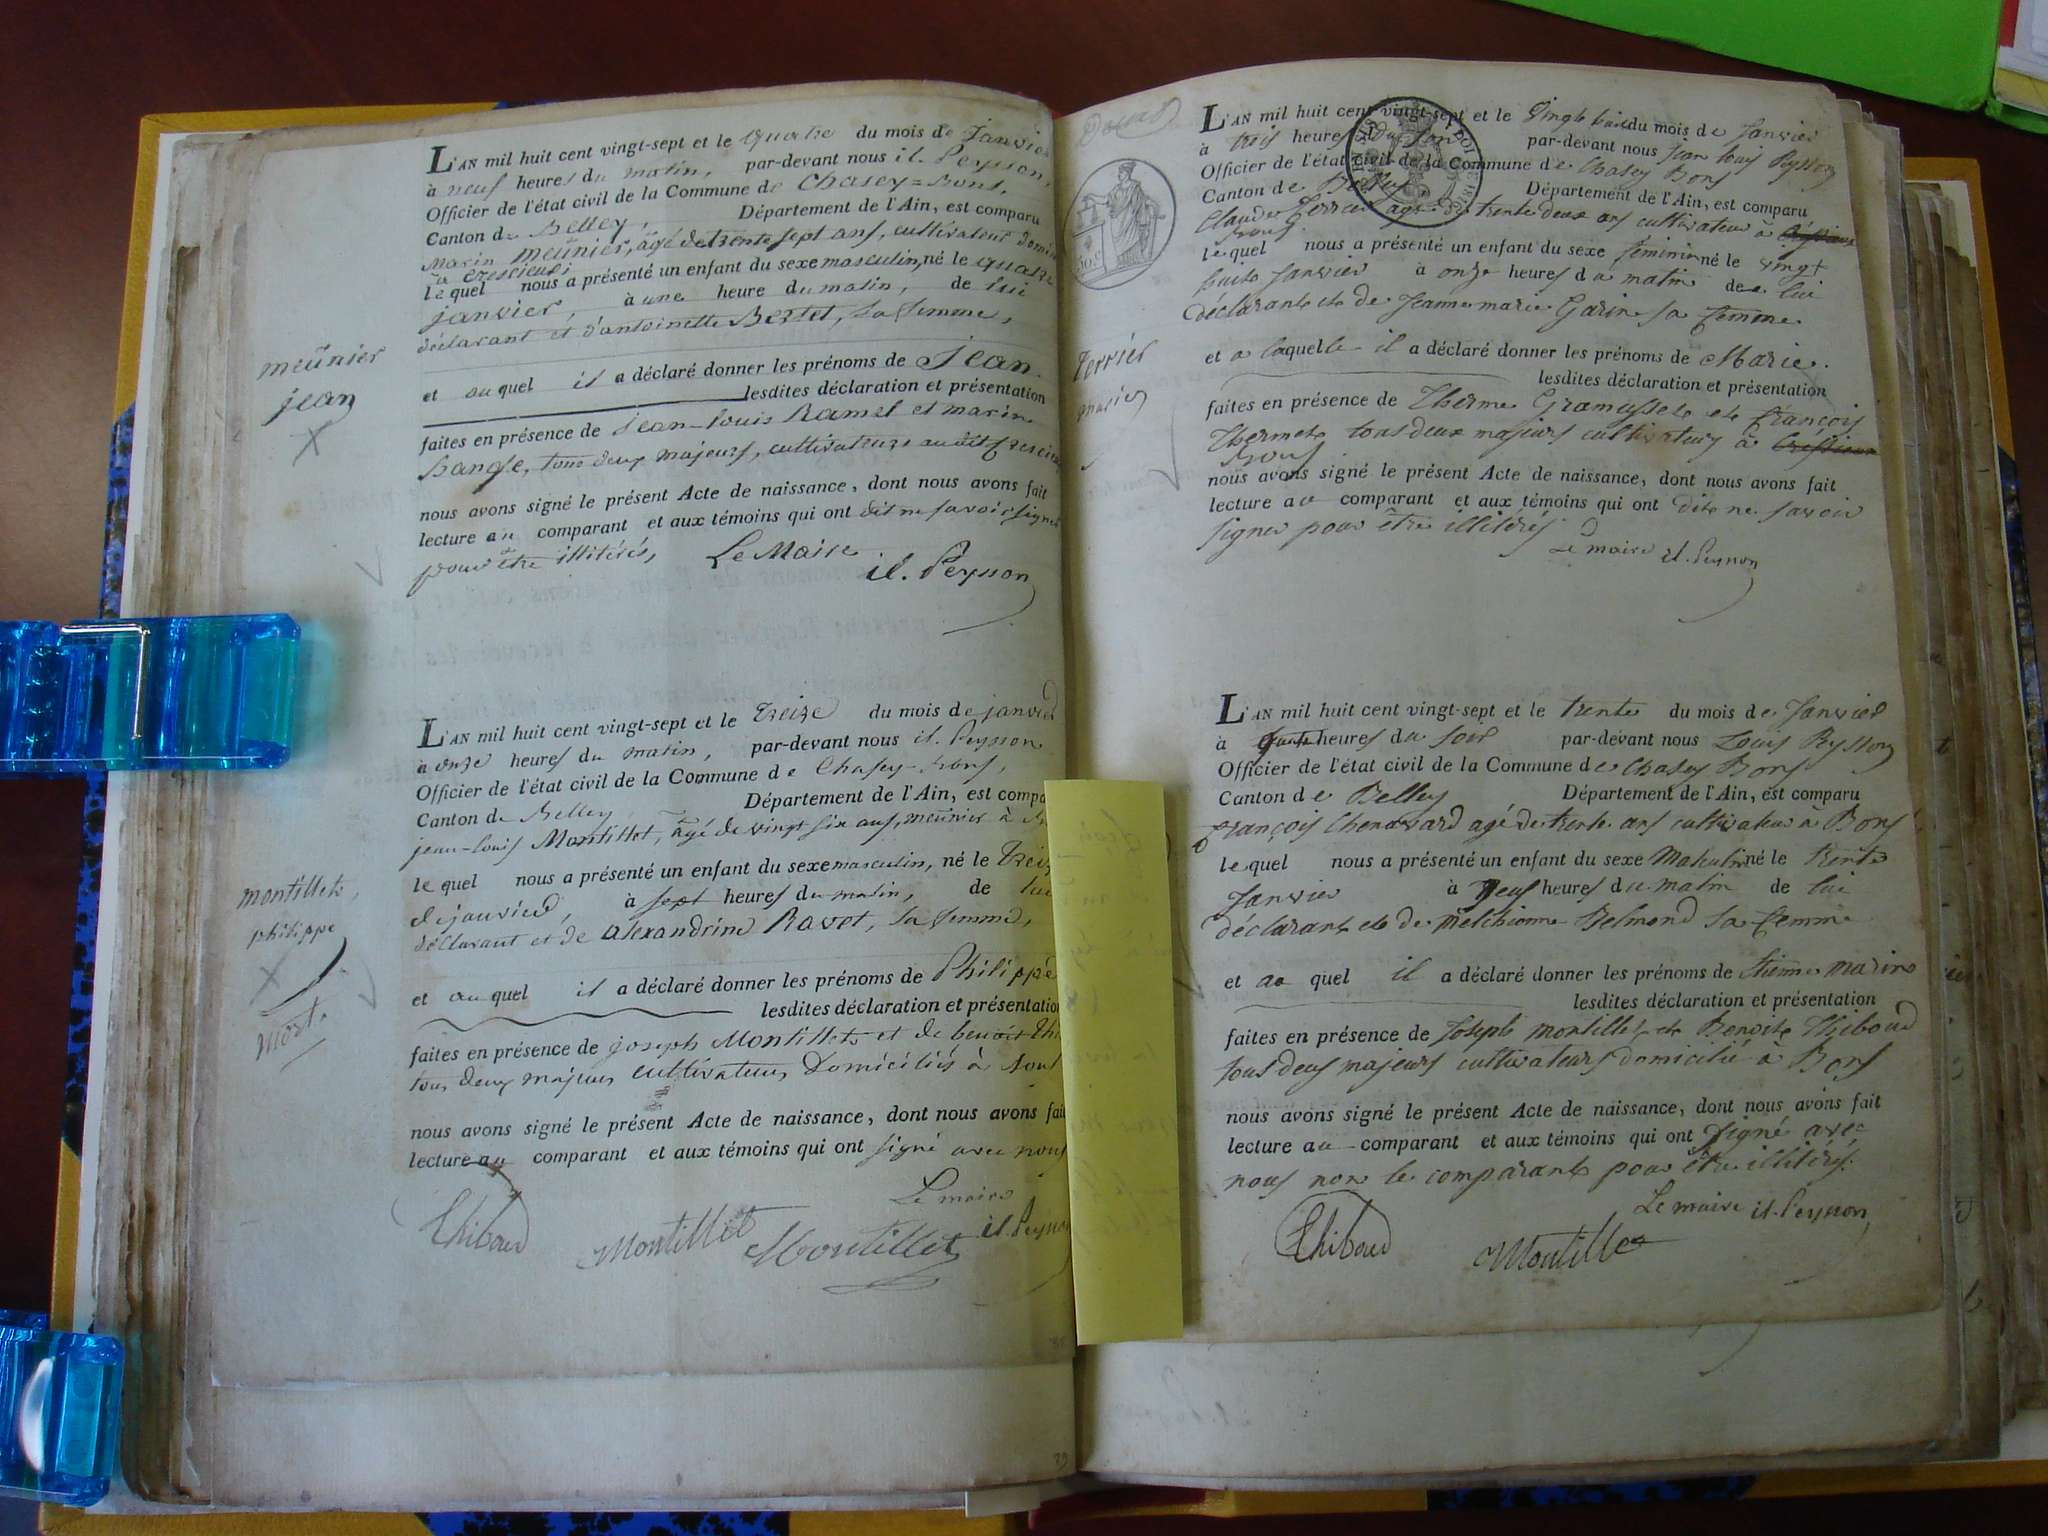 L'AN mil huit cent vingt-sept et le quatre du mois de janvier
à neuf heures du matin, par-devant nous jl. Peysson,
Officier de l'état civil de la Commune de Chasey=Bons,
Canton de Belley, Département de l'Ain, est comparu
Marin meünier, âgé de trente sept ans, cultivateur
à
le quel nous a présenté un enfant du sexe masculin, né le quatre
janvier, à une heure du matin, de lui
déclarant et d'antoinette Bertet, sa femme,
et au quel il a déclaré donner les prénoms de Jean.
lesdites déclaration et présentation
faites en présence de jean-louis Ramel et marin
tous deux majeurs, cultivateurs audit
nous avons signé le présent Acte de naissance, dont nous avons fait
lecture au comparant et aux témoins qui ont dit ne savoir signer
pour être illitérés, Le Maire
jl. Peysson
meünier
jean
L'AN mil huit cent vingt-sept et le treize du mois de janvier
à onze heures du matin, par-devant nous jl. Peysson
Officier de l'état civil de la Commune de Chasey-Bons,
Canton de Belley, Département de l'Ain, est compa
jean-louis Montillet, âgé de vingt six ans, meünier à
le quel nous a présenté un enfant du sexe masculin, né le treize
de janvier, à sept heures du matin, de lui
déclarant et de alexandrine Ravet, sa femme,
et au quel il a déclaré donner les prénoms de Philippe
lesdites déclaration et présentation
faites en présence de joseph Montillet et de benoit
tous deux majeurs cultivateurs Domiciliés à
nous avons signé le présent Acte de naissance, dont nous avons fait
lecture au comparant et aux témoins qui ont signé avec nous
Le maire
jl. Peysson
Thiboud Montillet Montillet
montillet,
philippe
mort.
L'AN mil huit cent vingt-sept et le vingt huit du mois de Janvier
à trois heures du soir par-devant nous jean louis Peysson
Officier de l'état civil de la Commune de Chasey Bons
Canton de Belley Département de l'Ain, est comparu
Claude Terrier agé de trente deux ans cultivateur à
Bons
le quel nous a présenté un enfant du sexe feminin né le vingt
huit Janvier à onze heures du matin de lui
déclarant et de Jeanne marie Garin sa femme
et a laquelle il a déclaré donner les prénoms de Marie.
lesdites déclaration et présentation
faites en présence de Therme Gramusset et François
Thermet tous deux majeurs cultivateurs à
Bons
nous avons signé le présent Acte de naissance, dont nous avons fait
lecture au comparant et aux témoins qui ont dit ne savoir
signer pour être illitérés
Le maire jl. Peysson
Terrier
marie
L'AN mil huit cent vingt-sept et le trente du mois de Janvier
à heures du soir par-devant nous Louis Peysson
Officier de l'état civil de la Commune de Chasey Bons
Canton de Belley Département de l'Ain, est comparu
François Chenavard agé de trente ans cultivateur à Bons
le quel nous a présenté un enfant du sexe Masculin né le trente
Janvier à Neuf heures du matin de lui
déclarant et de Melchionne Belmond sa femme
et au quel il a déclaré donner les prénoms de étienne marin
lesdites déclaration et présentation
faites en présence de Joseph montillet et Benoit Thiboud
tous deux majeurs cultivateurs domicilié à Bons
nous avons signé le présent Acte de naissance, dont nous avons fait
lecture au comparant et aux témoins qui ont signé avec
nous non le comparant pour être illitérés.
Le maire jl. Peysson
Thiboud Montillet